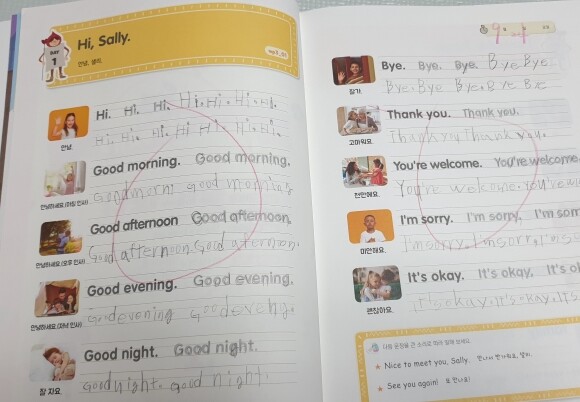 DAY
1
Hi, Sally.
안녕, 샐리.
Hi. Hi. Hi. Hi. Hi. Hi. Hi.
Hi. Hi. Hi. Hi Hi. Hi. Hi.
안녕.
Good morning. Good morning.
Goodmorni good morning
안녕하세요.(아침 인사)
Good afternoon Good afternoon.
Good afternoon. Good afternoon.
안녕하세요.(오후 인사)
Good evening. Good evening.
Goodevening goodeveng.
안녕하세요.(저녁 인사)
Good night. Good night.
Goodnight. good night.
잘 자요.
Bye. Bye. Bye. Bye Bye
Bye. Bye Bye. Bye Bye
잘가.
Thank you. Thank you.
Thank you Thank you.
고마워요.
You're welcome. You're welcome
You're welcome. You're we
천만에요.
I'm sorry. I'm sorry. I'm sorr
I'm sorry. I'm sorry. I'm so
미안해요.
It's okay. It's okay. It's ok
It's okay. It's okay. It's
괜찮아요.
다음 문장을 큰 소리로 따라 말해 보세요.
★ Nice to meet you, Sally. 만나서 반가워요, 샐리.
★ See you again! 또 만나요!